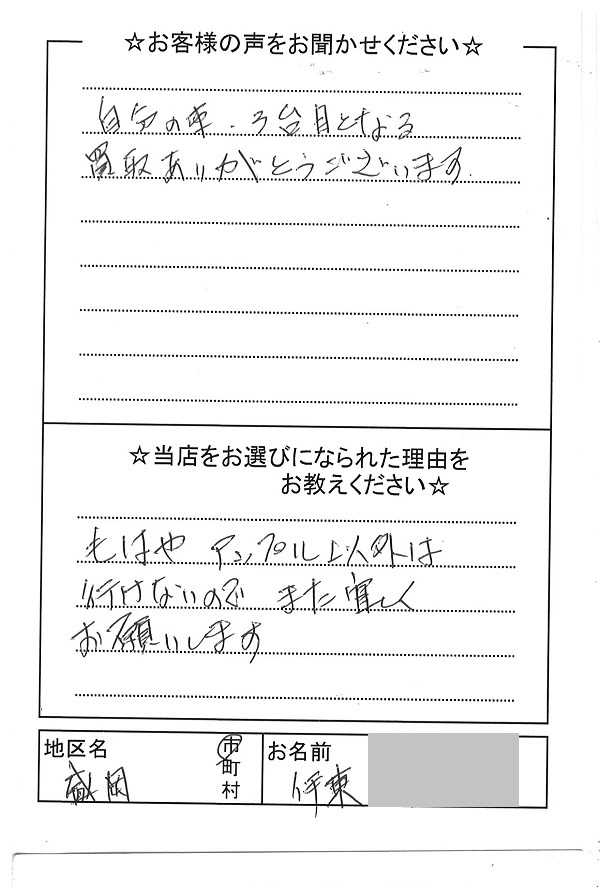 ☆お客様の声をお聞かせください☆
自分の車、3台目となる
買取ありがとうございます
☆当店をお選びになられた理由を
お教えください☆
もはや アップル以外は
行けないので また宜しく
お願いします
地区名
盛岡
市
町
村
お名前
伊東